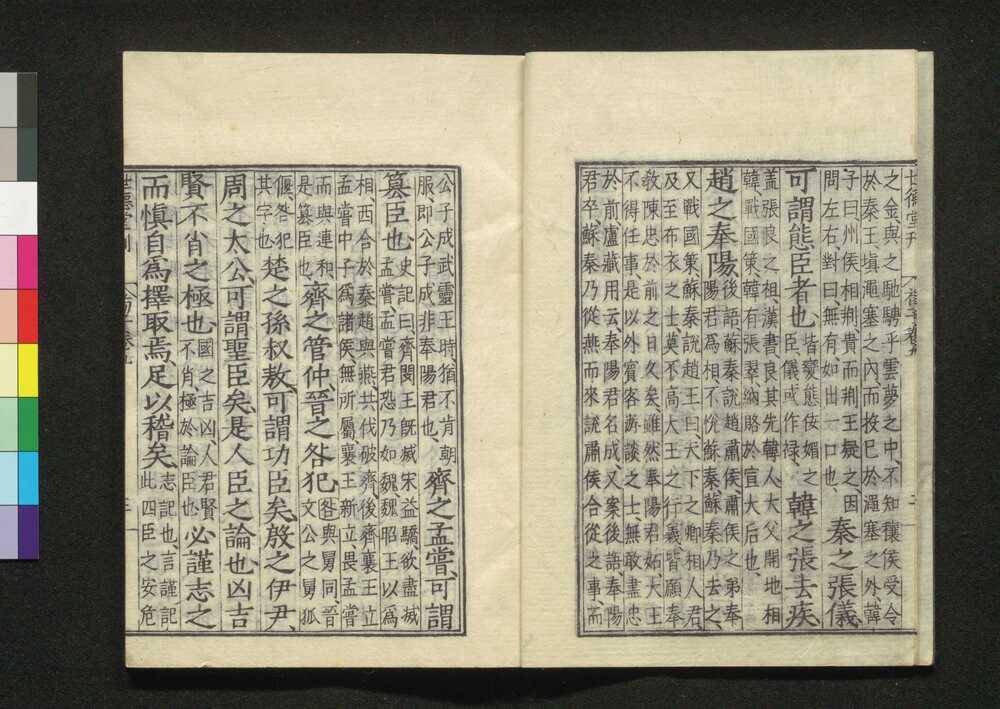 之金與之馳騁乎雲夢之中不知穰侯受令
於秦王填黽塞之內而投巳於黽塞之外韓
子曰州侯相荆貴而荆王疑之因
問左右對曰無有如出一口也
秦之張儀
可謂態臣者也
皆變態佞媚之
臣儀或作祿
韓之張去疾
蓋張良之祖漢書良其先韓人大父開地相
韓戰國策韓有張翠納賂於宣太后也
趙之奉陽
後語蘇秦說趙肅侯肅侯之弟奉
陽君爲相不悅蘇秦蘇秦乃去之
又戰國策蘇秦說趙王曰天下之卿相人君
及至布衣之士莫不高大王之行義皆願奉
敎陳忠於前之日久矣雖然奉陽君妬大王
不得任事是以外賓客游談之士無敢盡忠
於前盧藏用云奉陽君名成又案後語奉陽
君卒蘇秦乃從燕而來說肅侯合從之事而
公子成武靈王時猶不肯朝
服即公子成非奉陽君也
齊之孟嘗可謂
篡臣也
史記曰齊閔王旣滅宋益驕欲盡滅
孟嘗孟嘗君恐乃如魏魏昭王以爲
相西合於秦趙與燕共伐破齊後齊襄王立
孟嘗中子爲諸侯無所屬襄王新立畏孟嘗
而與連和
是篡臣也
齊之管仲晉之咎犯
咎與舅同晉
文公之舅狐
偃咎犯
其字也
楚之孫叔敖可謂功臣矣殷之伊尹
周之太公可謂聖臣矣是人臣之論也凶吉
賢不肖之極也
國之吉凶人君賢
不肖極於論臣也
必謹志之
而愼自爲擇取焉足以稽矣
志記也言謹記
此四臣之安危